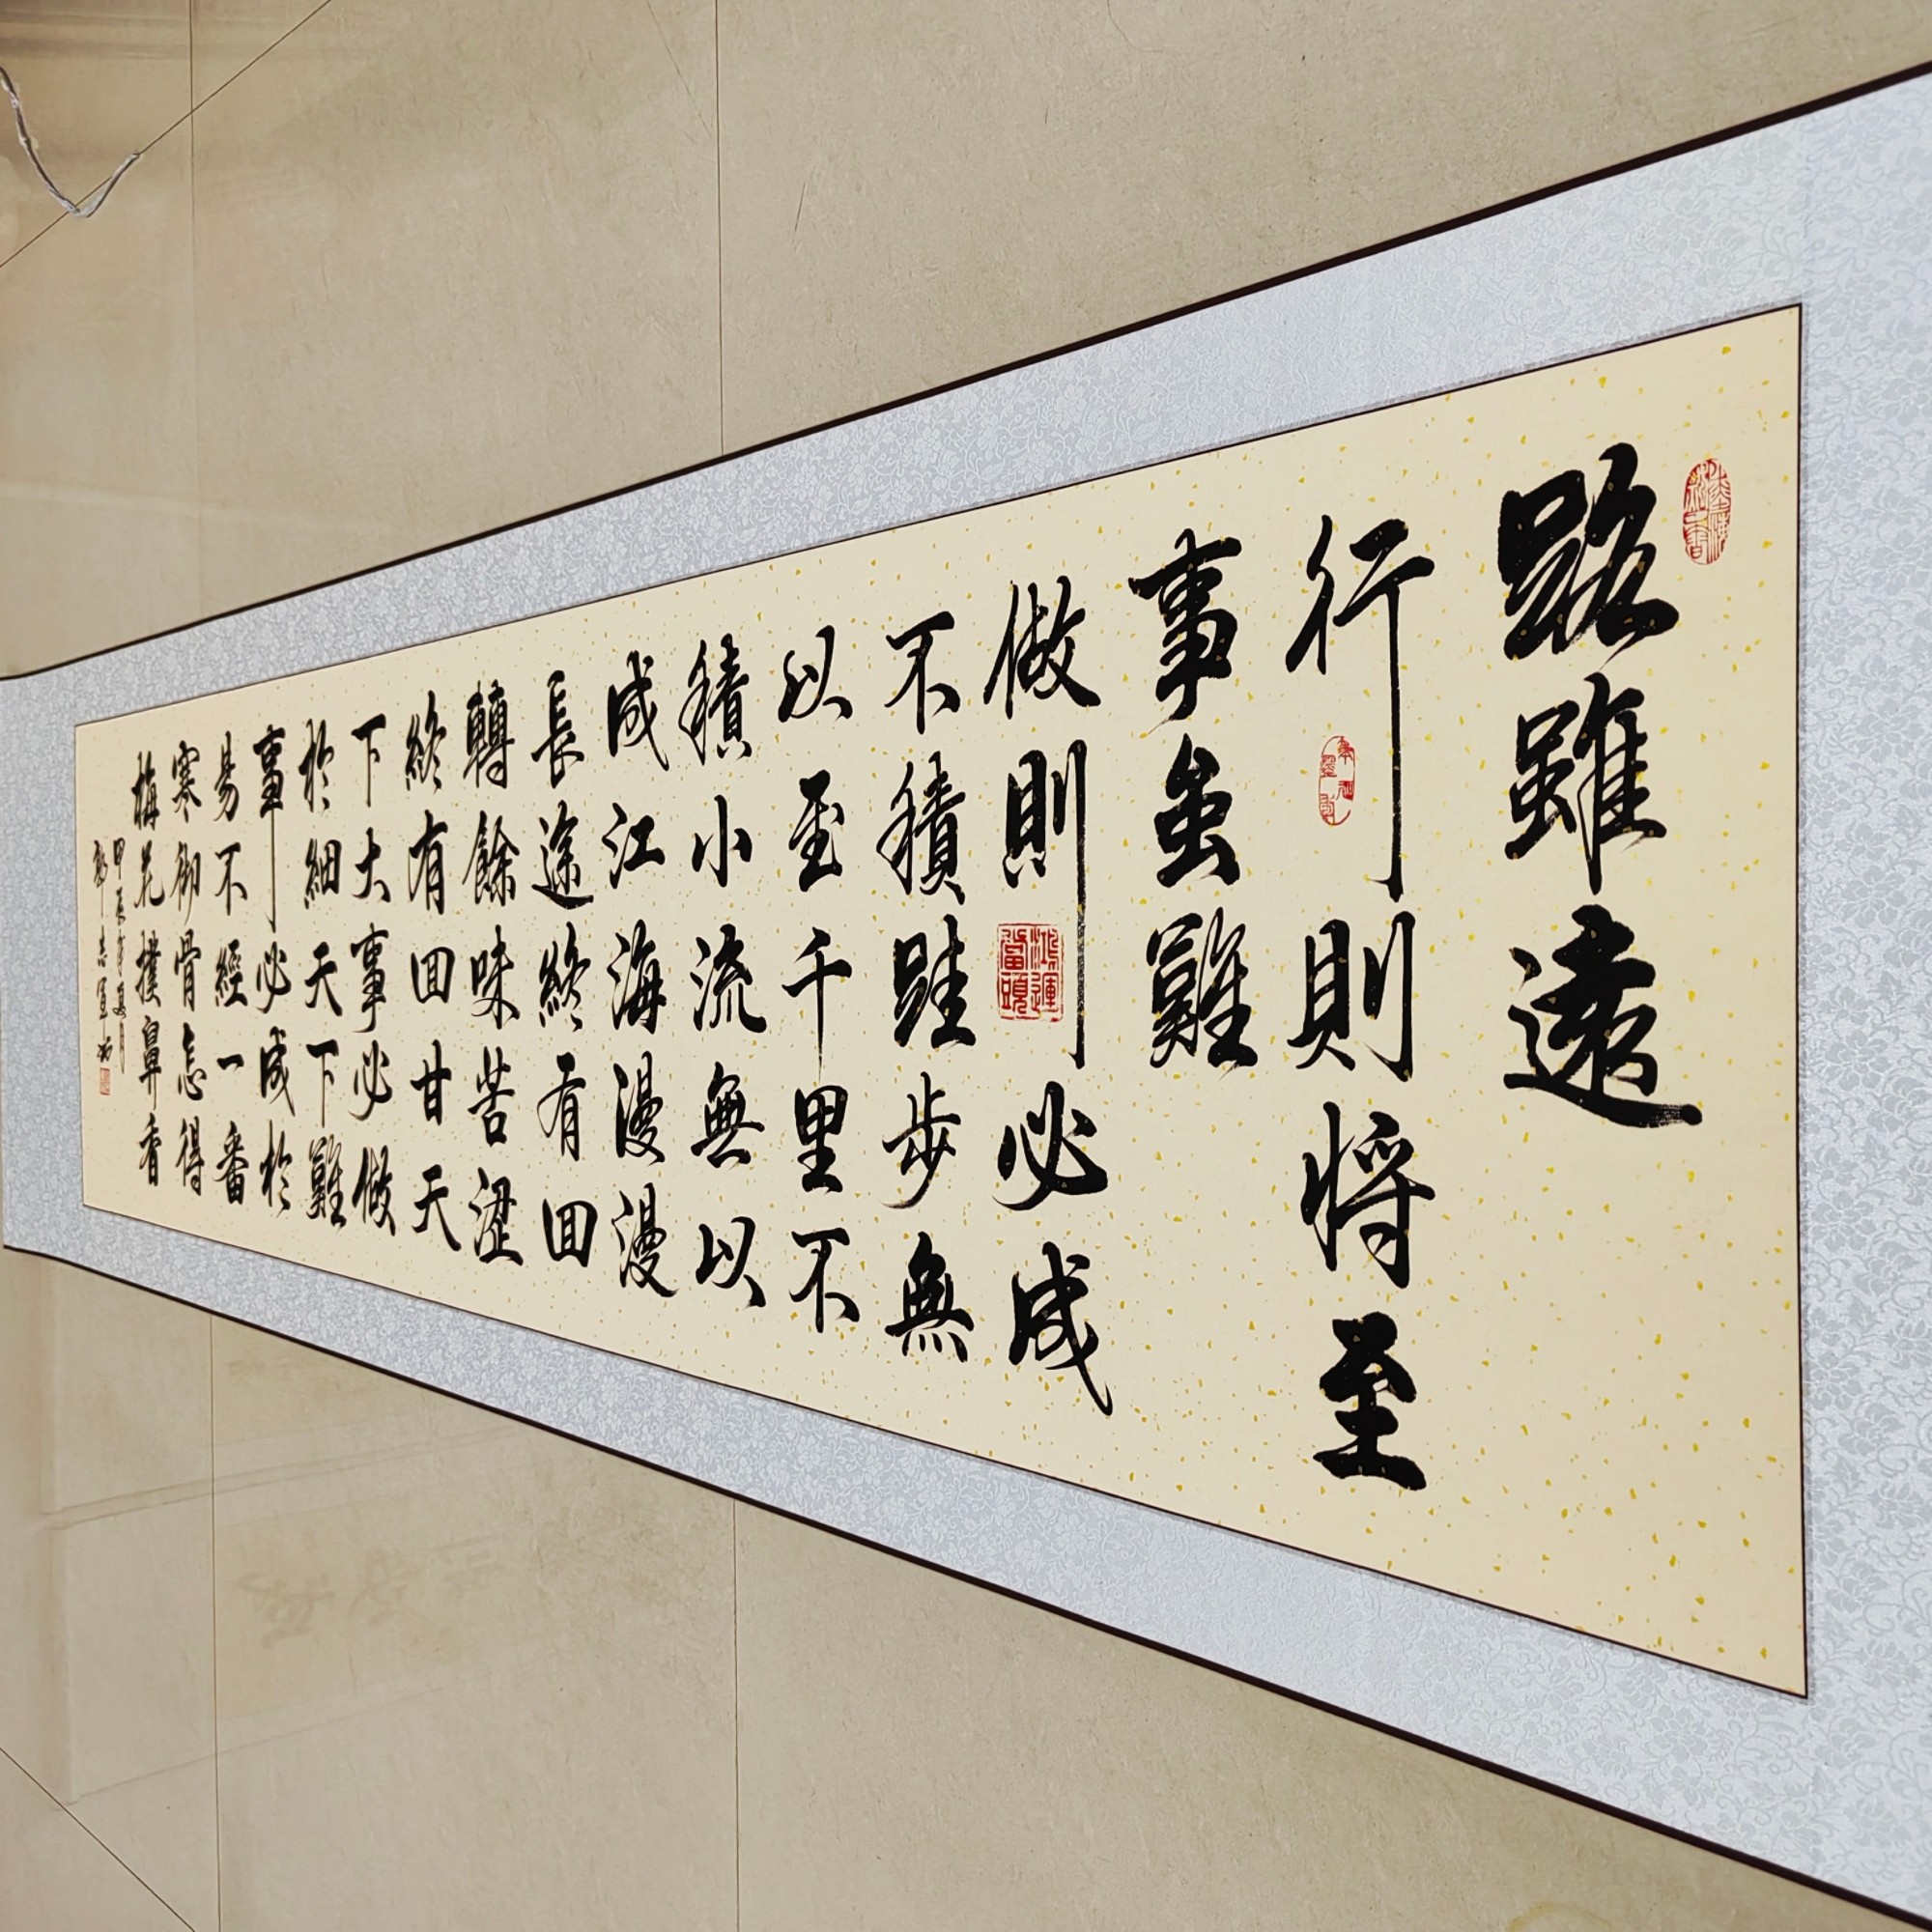 路雖遠
行則將至
事虽難
做則必成
不積跬步無
以至千里不
積小流無以
成江海漫漫
長途終有回
轉餘味苦澀
終有回甘天
下大事必做
於細天下難
事必成於
易不經一番
寒徹骨怎得
梅花撲鼻香
甲辰年夏月
鴻運當頭